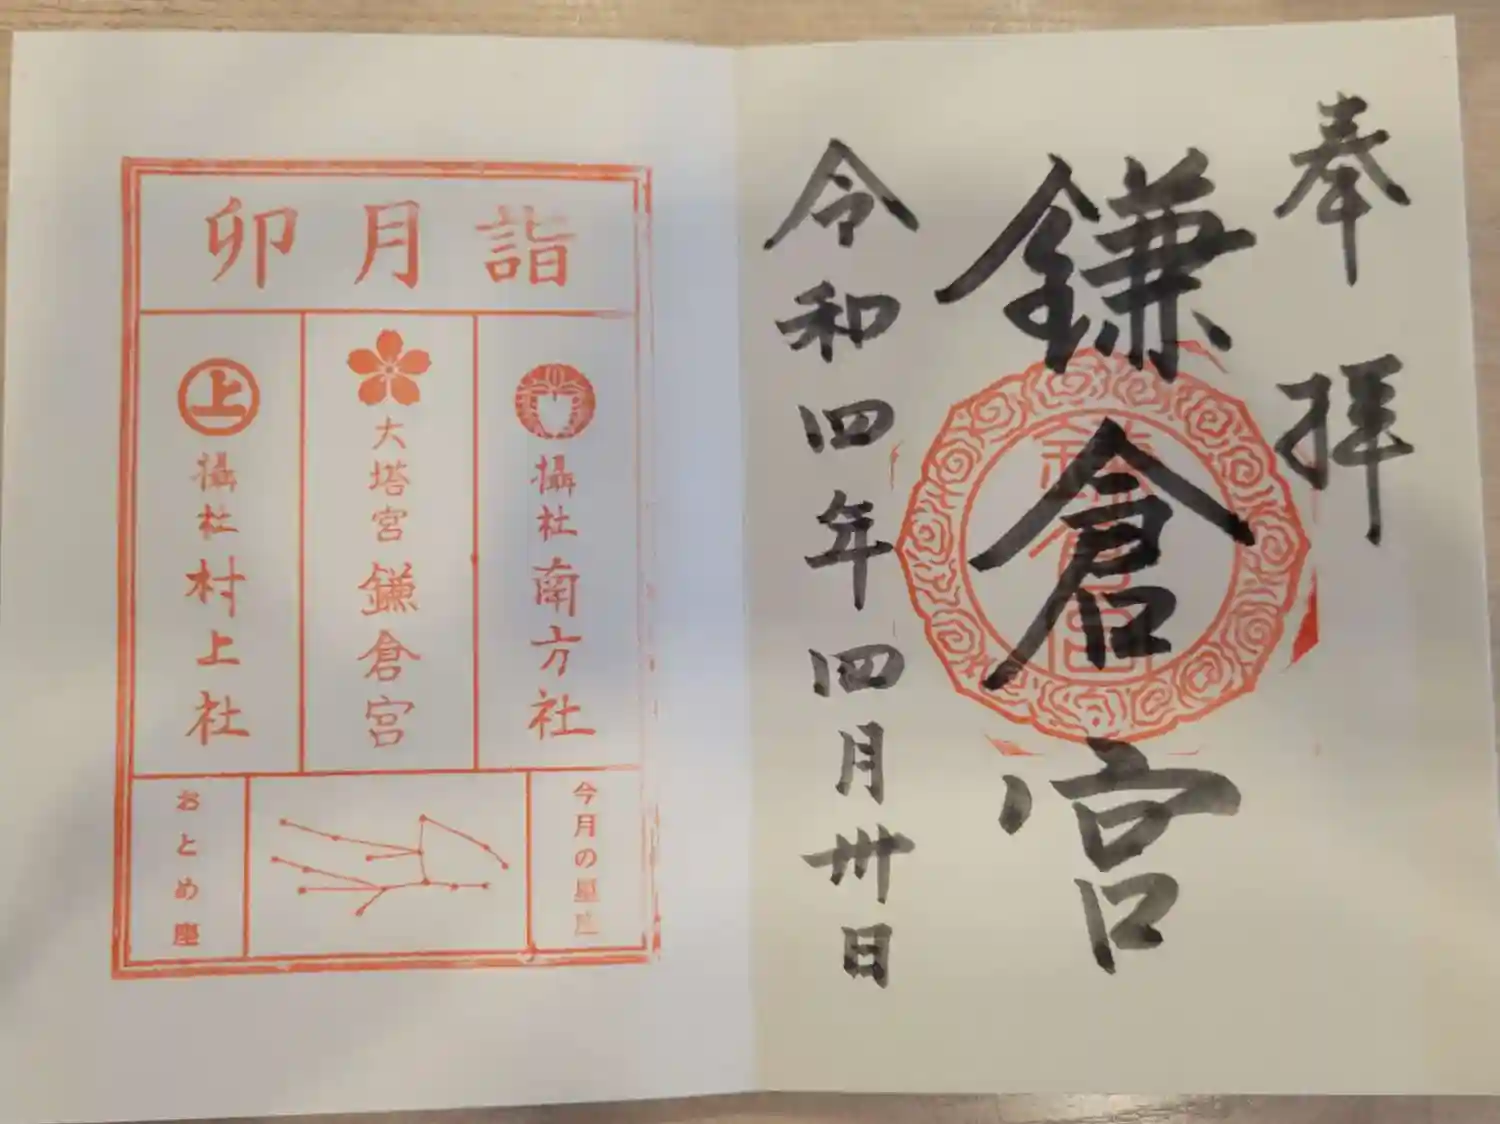 奉拝
鎌倉宮
令和四年四月卅日
鎌倉宮
卯月詣
攝社南方社
大塔宮鎌倉宮
上
攝社村上社
今月の星座
おとめ座